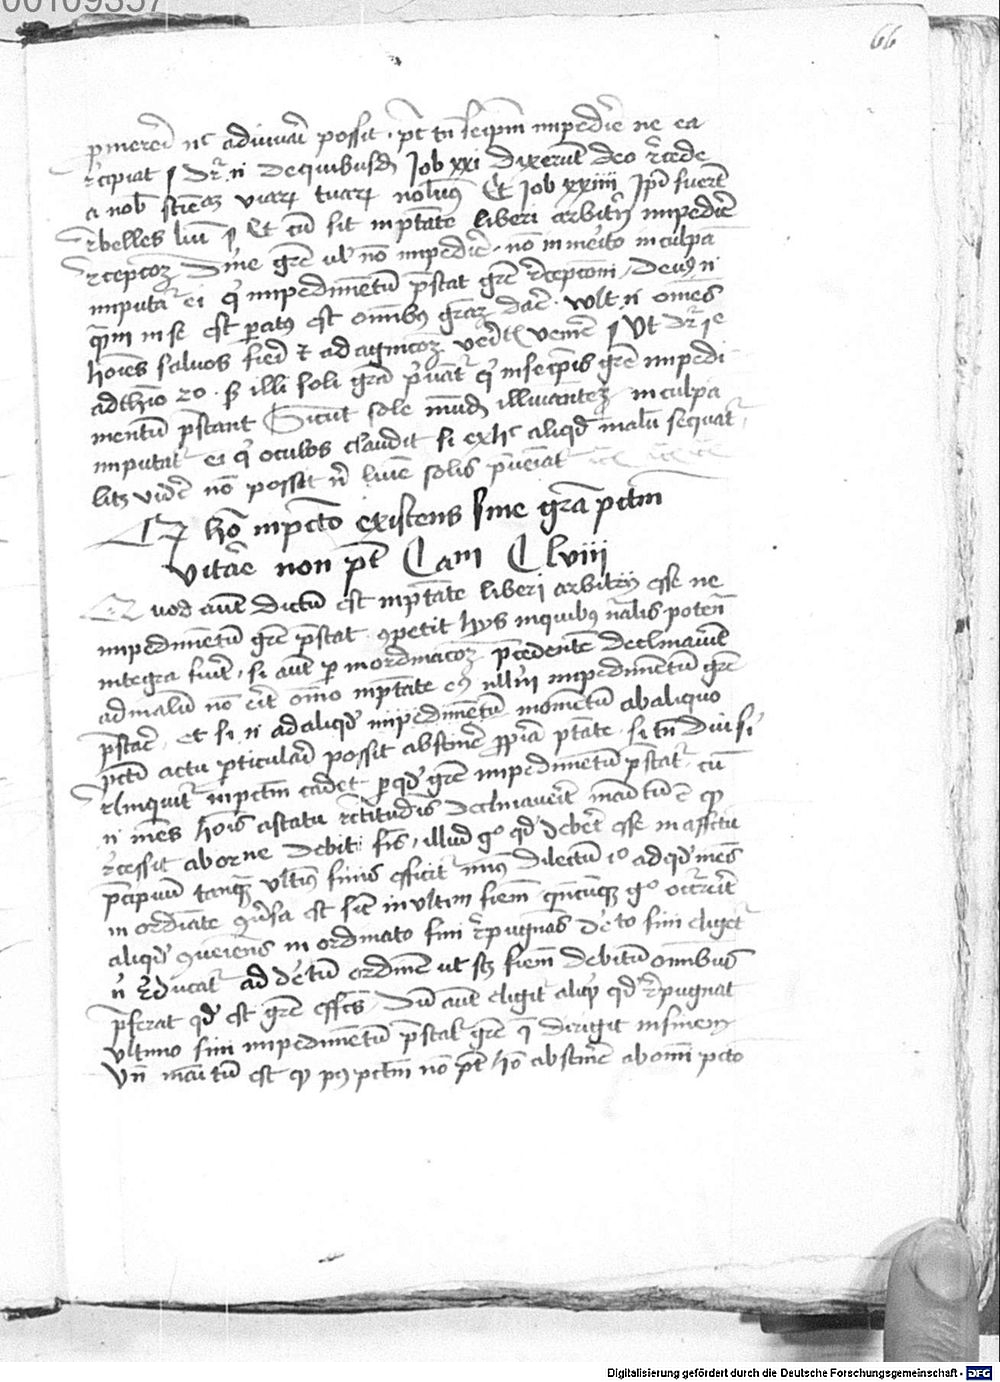 66
ꝑmereri nec adiuuari possit · pt tn seipm impedire ne ea
recipiat Dr n de quibusdam Job xxi dixerut deo recede
a nob scientia viaꝝ tuaꝝ nolumus Et Job xxiiii Ipi fuert
rebelles lui Et cu sit in ptate liberi arbitrij impedire
recepcoem diuine gre ul no impedire · no inmerito in culpa
imputat ei qui impedimetu prestat gre recepcioni / Deus n
qtum in se est paratus est omibus gram dare · vult n omes
hoies saluos fieri et ad agnicoem veritatis venire Ut dr Ie
ad thio 2o · s illi soli gra priuatur qui in seipis gre impedi
mentu prestant Sicut sole mudu illuminante in culpa
imputat ei qui oculos claudit si ex hoc aliqd malu sequat
licet videre no possit n lumie solis preueniat
Q ho in pcto existens sine gra pctm
vitare non pt Cam C lviii
Quod aute dictu est in ptate liberi arbitrij esse ne
impedimetu gre prestat · competit hijs in quibus nalis potent
integra fuerit · si aute per inordinacoem precedente declinauerit
ad malu no erit omo in ptate eius nullum impedimetu gre
prestare · et si n ad aliqd impedimetu mometu ab aliquo
pcti actu perticulari possit abstinere ppria ptate · si tn diu si
relinquit in pctm cadet per qd gre impedimetu prestat · cu
n mes hois a statu rectitudis declinauerit maitu e qd
recessit ab ordine debiti finis · illud go qd deberet esse in affectu
precipuu tanqm vltims finis efficit mius dilectu io ad qd mes
inordinate couersa est sic in vltim finem quecuqz go occurrerit
aliqd conueniens inordinato fini repugnas debito fini eliget
n reducat ad debitu ordine ut scz finem debitu omnibus
preferat qd est gre effectus · Du aute eligit aliqd qd repugnat
vltimo fini impedimetu prestat gre que dirigit in finem
Vn maitu est qd post pctm no pt ho abstinere ab omi pcto
Digitalisierung gefördert durch die Deutsche Forschungsgemeinschaft - DFG